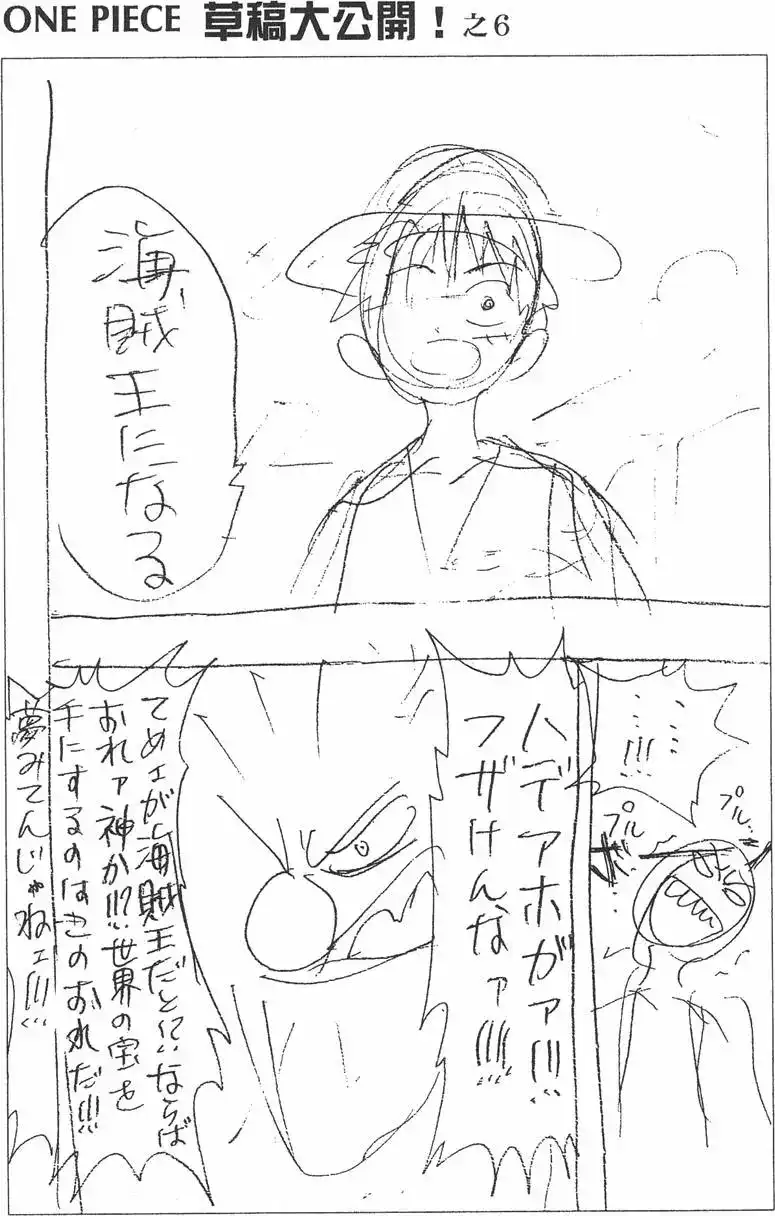 ONE PIECE 草稿大公開！之6
海賊王になる
‥‥‥!!!
プル
プル‥
ハデアホがァ!!!
フザけんなァ!!!!
てめェが海賊王だと!?ならば
おれァ神か!!?世界の宝を
手にするのはこのおれだ!!!
夢みてんじゃねェ!!!